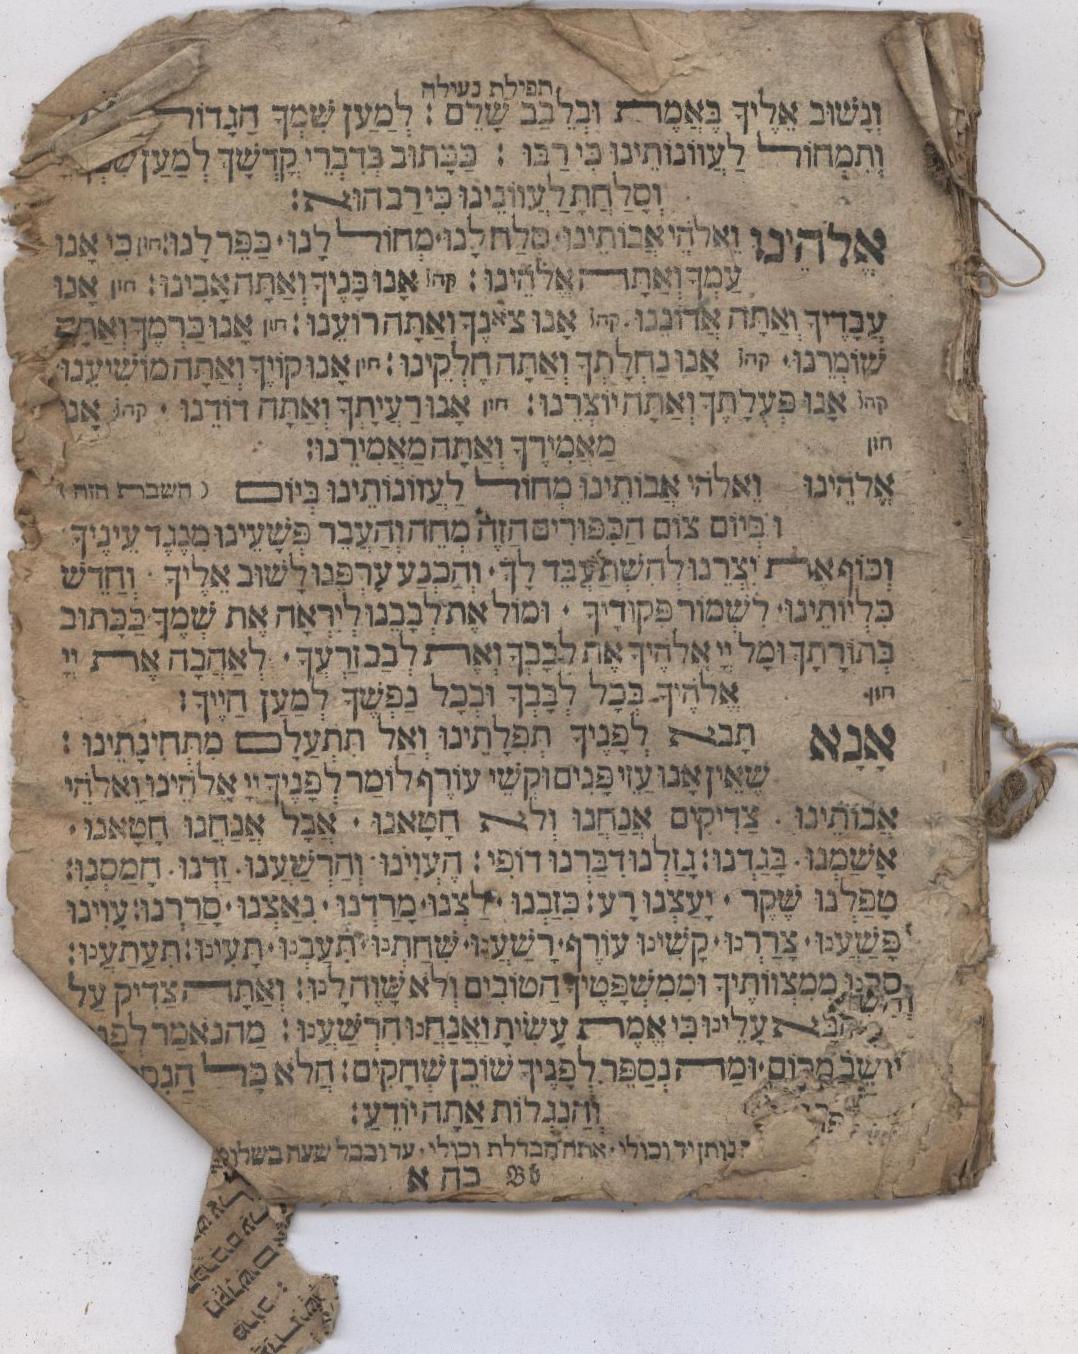 תפילת נעילה
וְנָשׁוּב אֵלֶיךָ בֶּאֱמֶת וּבְלֵבַב שָׁלֵם : לְמַעַן שִׁמְךָ הַגָדוֹל
וְתִמְחוֹל לַעֲווֹנוֹתֵינוּ כִּי רַבּוּ : כַּכָּתוּב בְּדִבְרֵי קָדְשֶׁךָ לְמַעַן
וְסָלַחְתָּ לַעֲוֹונֵינוּ כִּי רַב הוּא :
אֱלֹהֵינוּ וֵאלֹהֵי אֲבוֹתֵינוּ · סְלַח לָנוּ · מְחוֹל לָנוּ · כַּפֵּר לָנוּ : חזן כִּי אָנוּ
עַמְּךָ וְאַתָּה אֱלֹהֵינוּ : קהל אָנוּ בָנֶיךָ וְאַתָּה אָבִינוּ : חזן אָנוּ
עֲבָדֶיךָ וְאַתָּה אֲדוֹנֵנוּ · קהל אָנוּ צֹאנֶךָ וְאַתָּה רוֹעֵנוּ : חזן אָנוּ כַרְמֶךָ וְאַתָּה
שׁוֹמְרֵנוּ · קהל אָנוּ נַחְלָתֶךָ וְאַתָּה חֶלְקֵינוּ : חזן אָנוּ קוֹוֶיךָ וְאַתָּה מוֹשִׁיעֵנוּ
קהל אָנוּ פְּעֻלָתֶךָ וְאַתָּה יוֹצְרֵנוּ : חזן אָנוּ רַעְיָתֶךָ וְאַתָּה דוֹדֵנוּ · קהל אָנוּ
חזן מַאֲמִירֶךָ וְאַתָּה מַאֲמִירֵנוּ :
אֱלֹהֵינוּ וֵאלֹהֵי אֲבוֹתֵינוּ מְחוֹל לַעֲווֹנוֹתֵינוּ בְּיוֹם ( השבת הזה )
וּבְיוֹם צוֹם הַכִּפּוּרִים הַזֶה מְחֵה וְהַעֲבֵר פְּשָׁעֵינוּ מִנֶגֶד עֵינֶיךָ
וְכוֹף אֶת יִצְרֵנוּ לְהִשְׁתַּעֲבֵּד לָךְ · וְהַכְנַע עָרְפֵּנוּ לָשׁוּב אֵלֶיךָ · וְחַדֵּשׁ
כִּלְיוֹתֵינוּ · לִשְׁמוֹר פִּקּוּדֶיךָ · וּמוֹל אֶת לְבָבֵנוּ לְיִרְאָה אֶת שְׁמֶךָ · כַּכָּתוּב
בְּתוֹרָתֶךָ וּמָל יְיָ אֱלֹהֶיךָ אֶת לְבָבְךָ וְאֶת לְבַב זַרְעֶךָ · לְאַהֲבָה אֶת יְיָ
חזן אֱלֹהֶיךָ בְּכָל לְבָבְךָ וּבְכָל נַפְשֶׁךָ לְמַעַן חַיֶּיךָ :
אָנָא תָּבֹא לְפָנֶיךָ תְּפִלָתֵינוּ וְאַל תִּתְעַלָם מִתְּחִינָתֵינוּ :
שֶׁאֵין אָנוּ עַזֵי פָּנִים וּקְשֵׁי עוֹרֶף לוֹמַר לְפָנֶיךָ יְיָ אֱלֹהֵינוּ וֵאלֹהֵי
אֲבוֹתֵינוּ · צַדִיקִים אֲנַחְנוּ וְלֹא חָטָאנוּ · אֲבָל אֲנַחְנוּ חָטָאנוּ ·
אָשַׁמְנוּ · בָּגַדְנוּ : גָזַלְנוּ דִבַּרְנוּ דוֹפִי : הֶעֱוִינוּ · וְהִרְשַׁעְנוּ · זַדְנוּ · חָמַסְנוּ :
טָפַלְנוּ שֶׁקֶר · יָעַצְנוּ רָע : כִּזַבְנוּ · לַצְנוּ · מָרַדְנוּ · נִאַצְנוּ · סָרַרְנוּ : עָוִינוּ
פָּשַׁעְנוּ · צָרַרְנוּ · קִשִׁינוּ עוֹרֶף · רָשַׁעְנוּ · שִׁחַתְנוּ · תִּעַבְנוּ · תָּעִינוּ : תִּעְתָּעְנוּ :
סַרְנוּ מִמִצְווֹתֶיךָ וּמִמִשְׁפָּטֶיךָ הַטוֹבִים וְלֹא שָׁוָה לָנוּ : וְאַתָּה צַדִיק עַל
הַבָּא עָלֵינוּ כִּי אֱמֶת עָשִׂיתָ וַאֲנַחְנוּ הִרְשָׁעְנוּ : מַה נֹאמַר לְפָנֶ
יוֹשֵׁב מָרוֹם · וּמַה נְסַפֵּר לְפָנֶיךָ שׁוֹכֵן שְׁחָקִים : הֲלֹא כָּל הַנִסְ
וְהַנִגְלוֹת אַתָּה יוֹדֵעַ :
נותן יד וכולי · אתה הבדלת וכולי · עד ובכל שעה בשלומ
Bb כה א